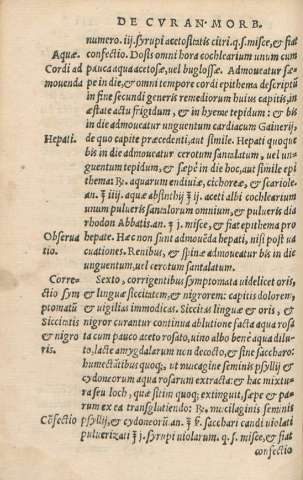 DE CVRAN. MORB.
numero. iij. syrupi acetositatis citri. q. s. misce, & fiat
Aquæ confectio. Dosis omni hora cochlearium unum cum
Cordi ad pauca aqua acetosæ, uel buglossæ. Admoueatur sæ⸗
mouenda pe in die, & omni tempore cordi epithema descriptũ
in fine secundi generis remediorum huius capitis, in
æstate actu frigidum, & in hyeme tepidum: & bis
in die admoueatur unguentum cardiacum Gainerij,
Hepati. de quo capite præcedenti, aut simile. Hepati quoque
bis in die admoueatur cerotum santalatum, uel un⸗
guentum tepidum, & sæpe in die hoc, aut simile epi
thema: ℞. aquarum endiuiæ, cichoreæ, & scariolæ
an. ℥ iiij. aquæ absinthij ℥ ij. aceti albi cochlearium
unum pulueris santalorum omnium, & pulueris dia
rhodon Abbatis. an. ʒ j. misce, & fiat epithema pro
Obserua hepate. Hæc non sunt admouẽda hepati, nisi post uă
tio. cuationes. Renibus, & spinæ admoueatur bis in die
unguentum, uel cerotum santalatum.
Corre⸗ Sexto, corrigentibus symptomata uidelicet oris,
ctio sym & linguæ siccitatem, & nigrorem: capitis dolorem,
ptomatũ & uigilias immodicas. Siccitas linguæ & oris, &
Siccitatis nigror curantur continua ablutione facta aqua rosa
& nigro ta cum pauco aceto rosato, uino albo benè aqua dilu⸗
ris. to, lacte amygdalarum non decocto, & sine saccharo:
humectãtibus quoq;, ut mucagine seminis psyllij &
cydoneorum aqua rosarum extracta: & hac mixtu⸗
ra seu loch, quæ sitim quoq; extinguit, sæpe & pa⸗
rum ex ea transglutiendo: ℞. mucilaginis seminis
Cõfectio psyllij, & cydoneorũ an. ℥ ß. sacchari candi uiolati
puluerizati ℥ j. syrupi uiolarum. q. s. misce, & fiat
confectio